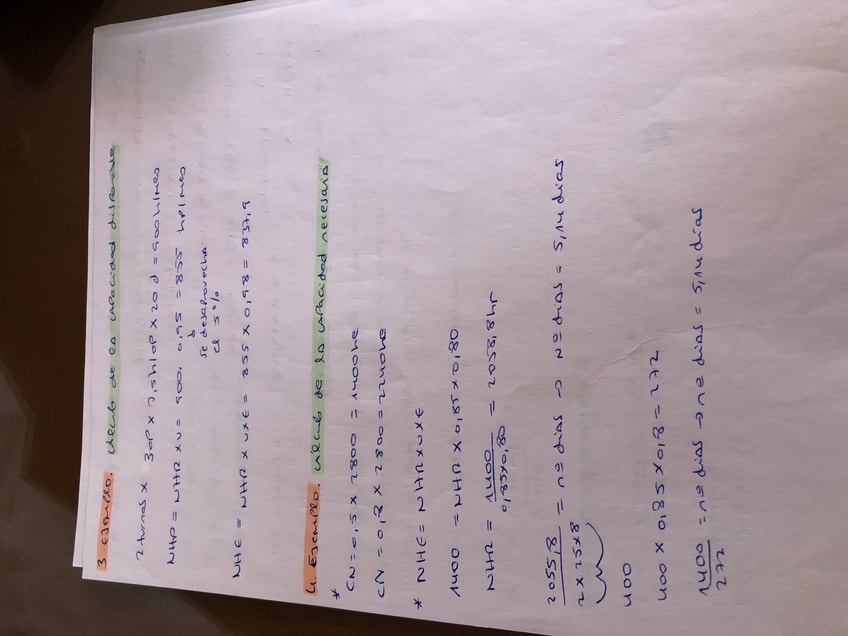 3. ejemplo. cálculo de la capacidad disponible
2 turnos x 3 OP x 7,5 h/OP x 20 d = 900 h/mes
NHP = NHR x U = 900 . 0,95 = 855 hp/mes
se desaprovecha
el 5%
NHE = NHR x U x E = 855 x 0,98 = 837,9
4. Ejemplo. cálculo de la capacidad necesaria
* CN = 0,5 x 2800 = 1400 he
CN = 0,8 x 2800 = 2240 he
* NHE = NHR x U x E
1400 = NHR x 0,85 x 0,80
NHR = 1400 / 0,85 x 0,80 = 2058,8 hr
2055,8 / 2 x 25 x 8 = nº dias → Nº dias = 5,14 dias
400
400 x 0,85 x 0,8 = 272
1400 / 272 = nº dias → nº dias = 5,14 dias